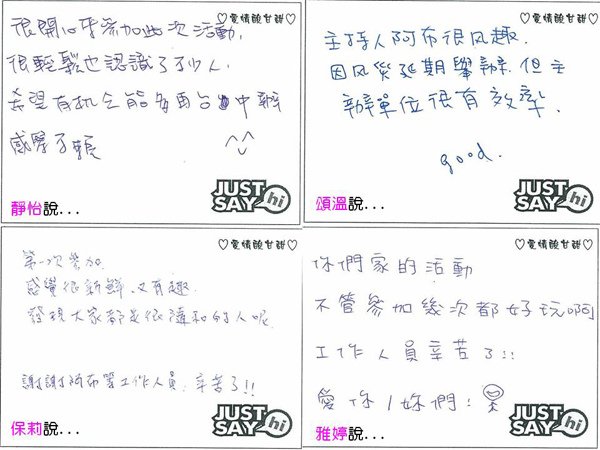 ♡電情酸甘甜♡
很開心能參加此次活動,
很輕鬆也認識了不少人,
希望有机会能多再台中辦
感摩了賴
^_^
JUST
SAY hi
靜怡說...
主持人阿布很风趣.
因风災延期舉辦.但主
辦單位很有效率.
good.
JUST
SAY hi
頌溫說...
♡電情酸甘甜♡
第一次參加.
感覺很新鮮.又有趣.
發現大家都是很隨和的人呢.
謝謝阿布等工作人員.辛苦了!!
JUST
SAY hi
保莉說...
♡電情酸甘甜♡
你們家的活動
不管參加幾次都好玩啊
工作人員辛苦了!!
愛你/妳們!
JUST
SAY hi
雅婷說...